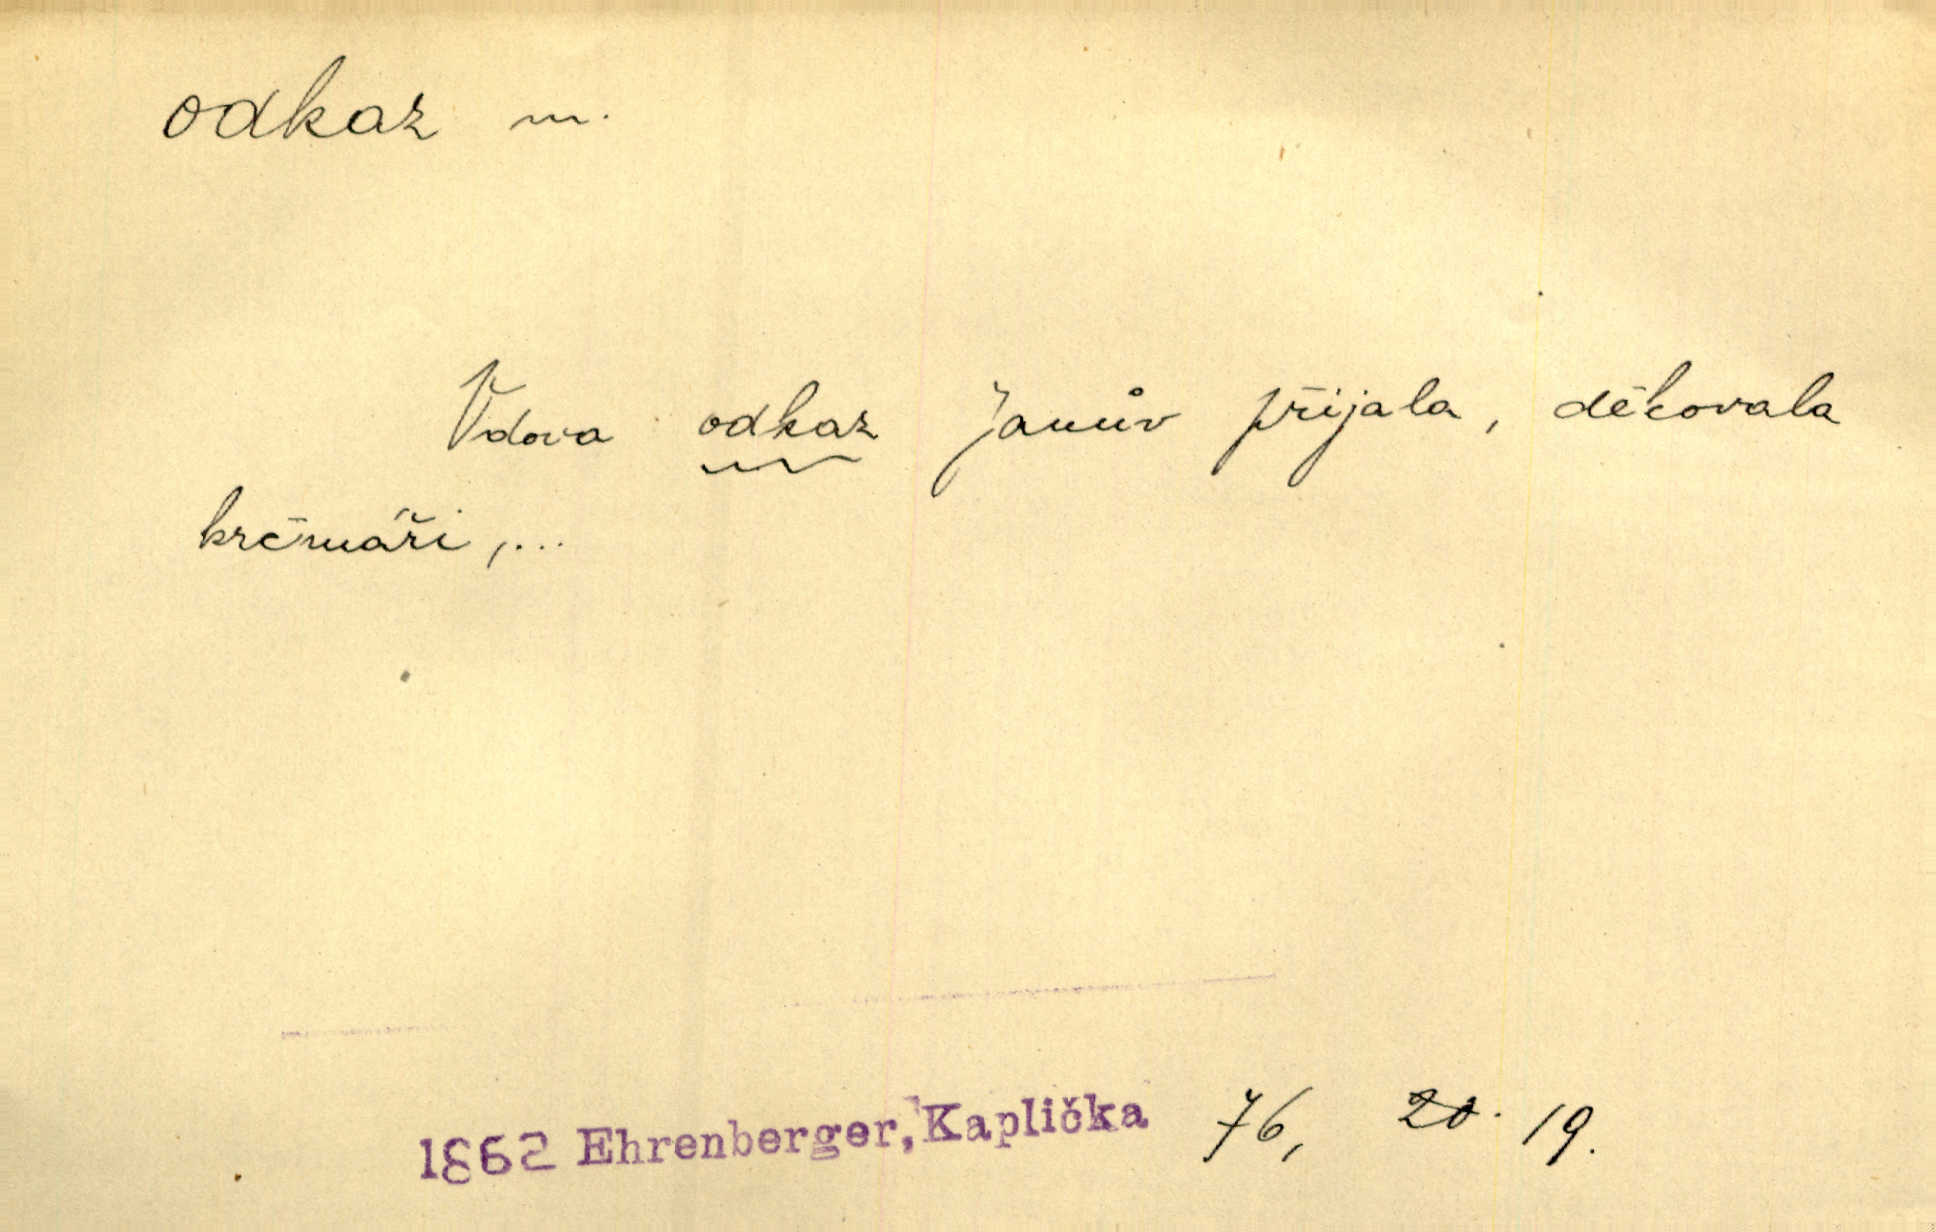 odkaz m.
Vdova odkaz Janův přijala, děkovala
krčmáři,...
1862 Ehrenberger, Kaplička 76, 20. 19.